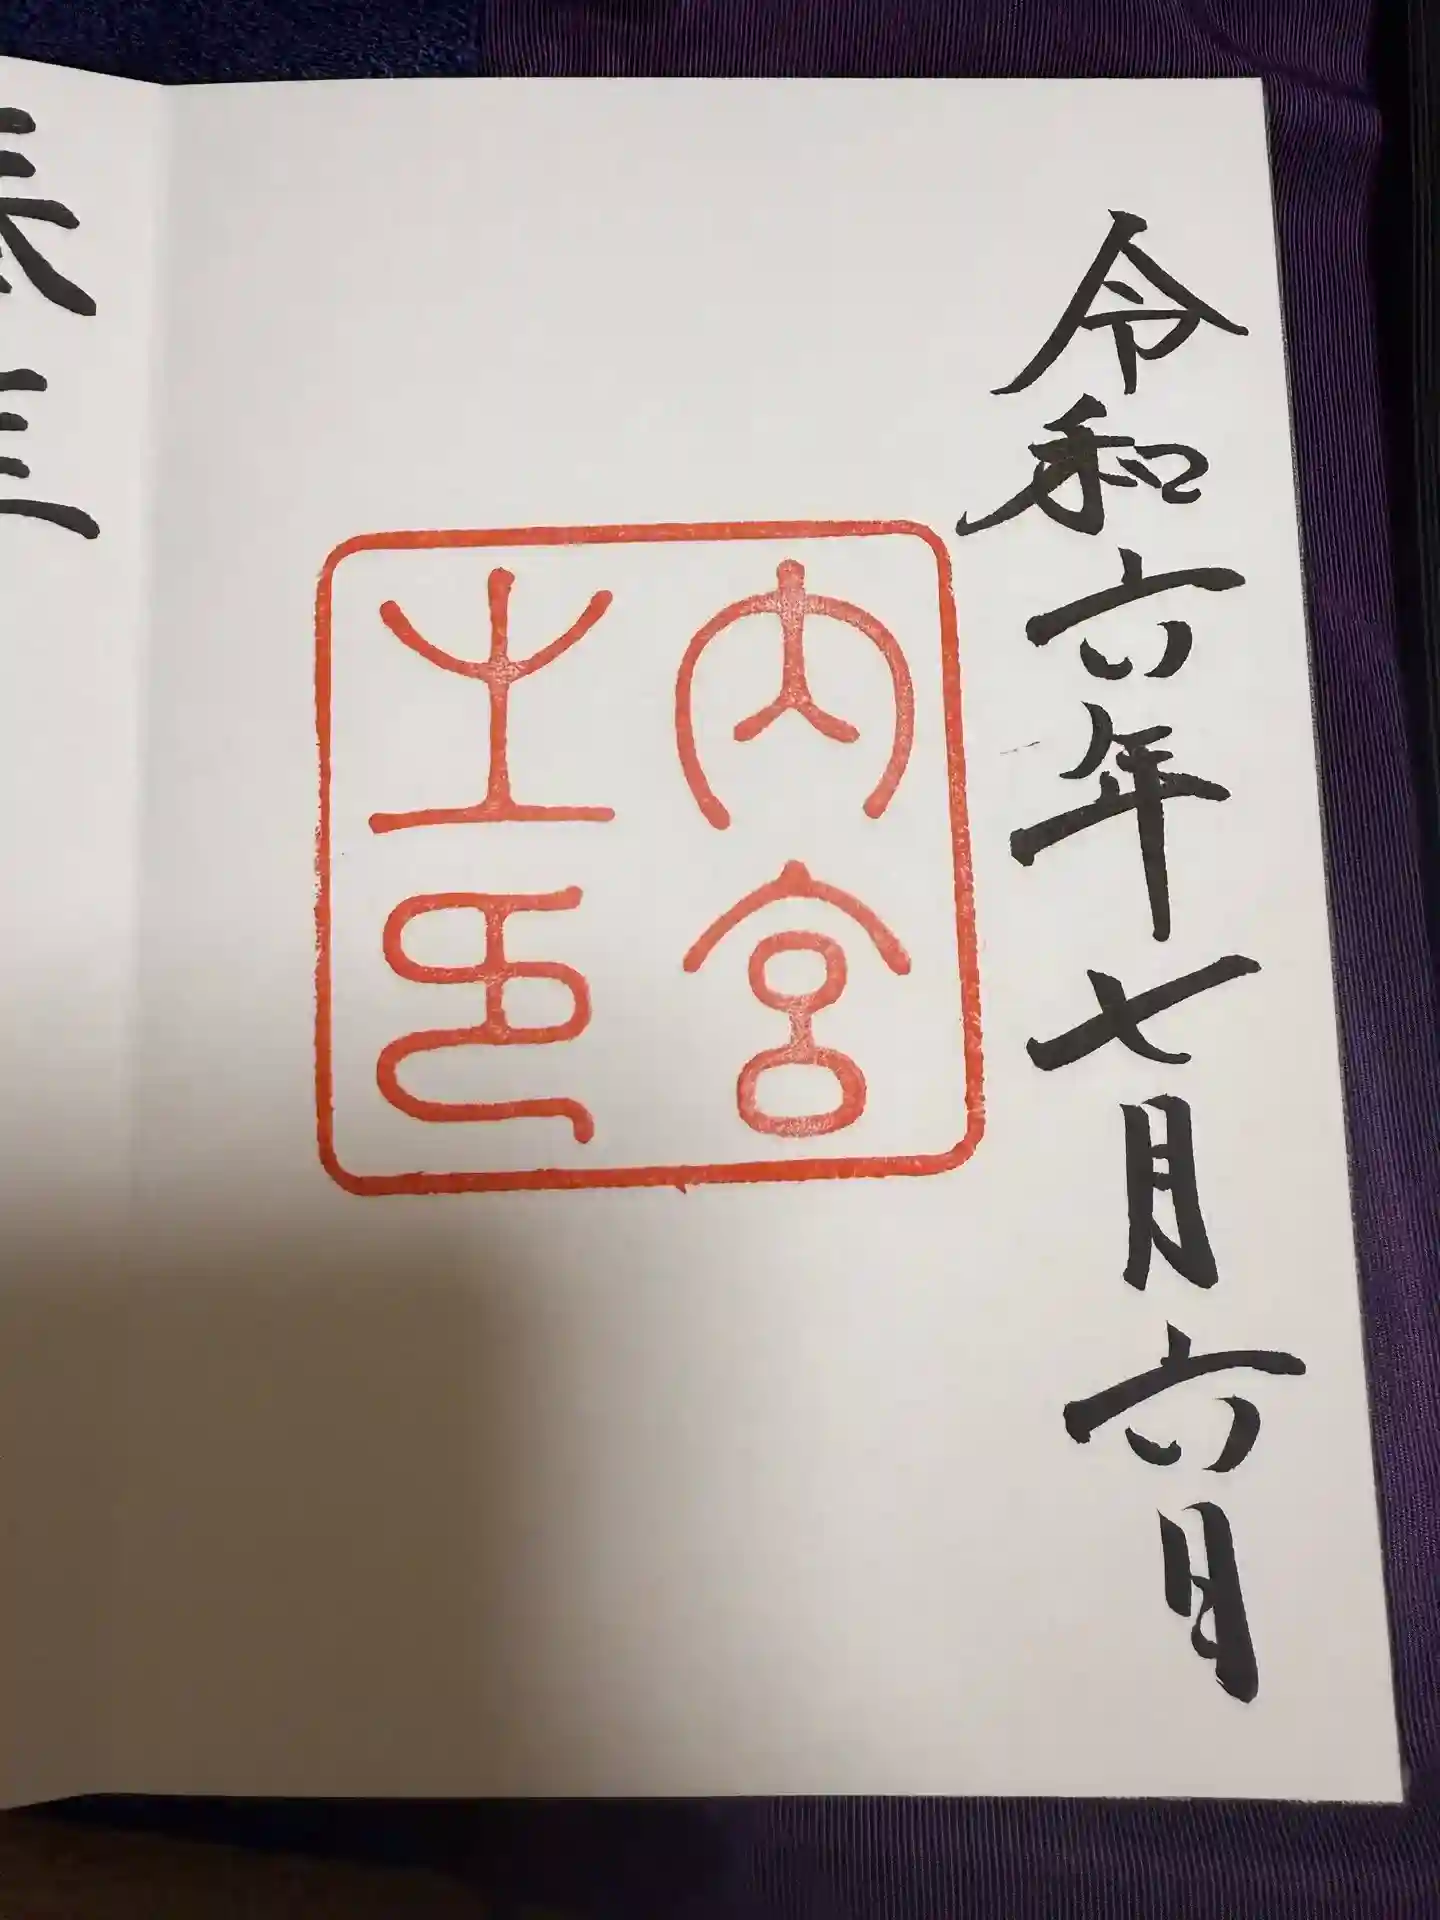 令和六年七月六日
内宮
之印
奉